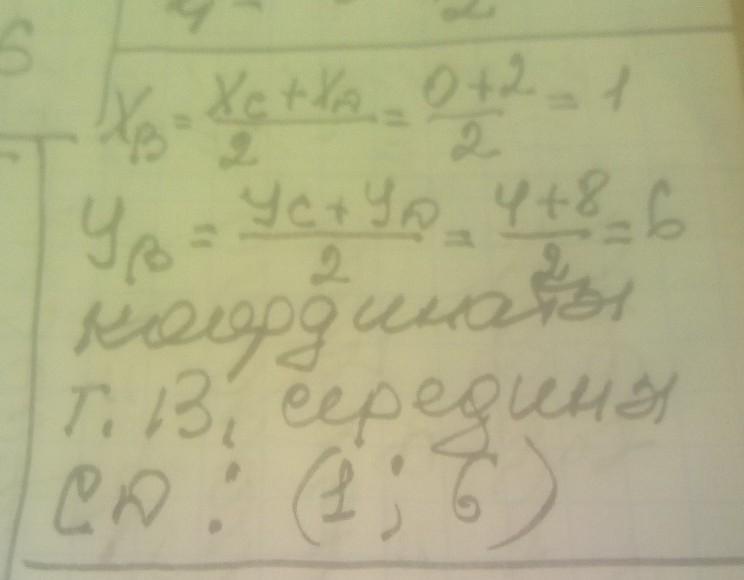 6
x_B = (x_C + x_D)/2 = (0+2)/2 = 1
y_B = (y_C + y_D)/2 = (4+8)/2 = 6
координаты
т. B, середины
CD : (1; 6)